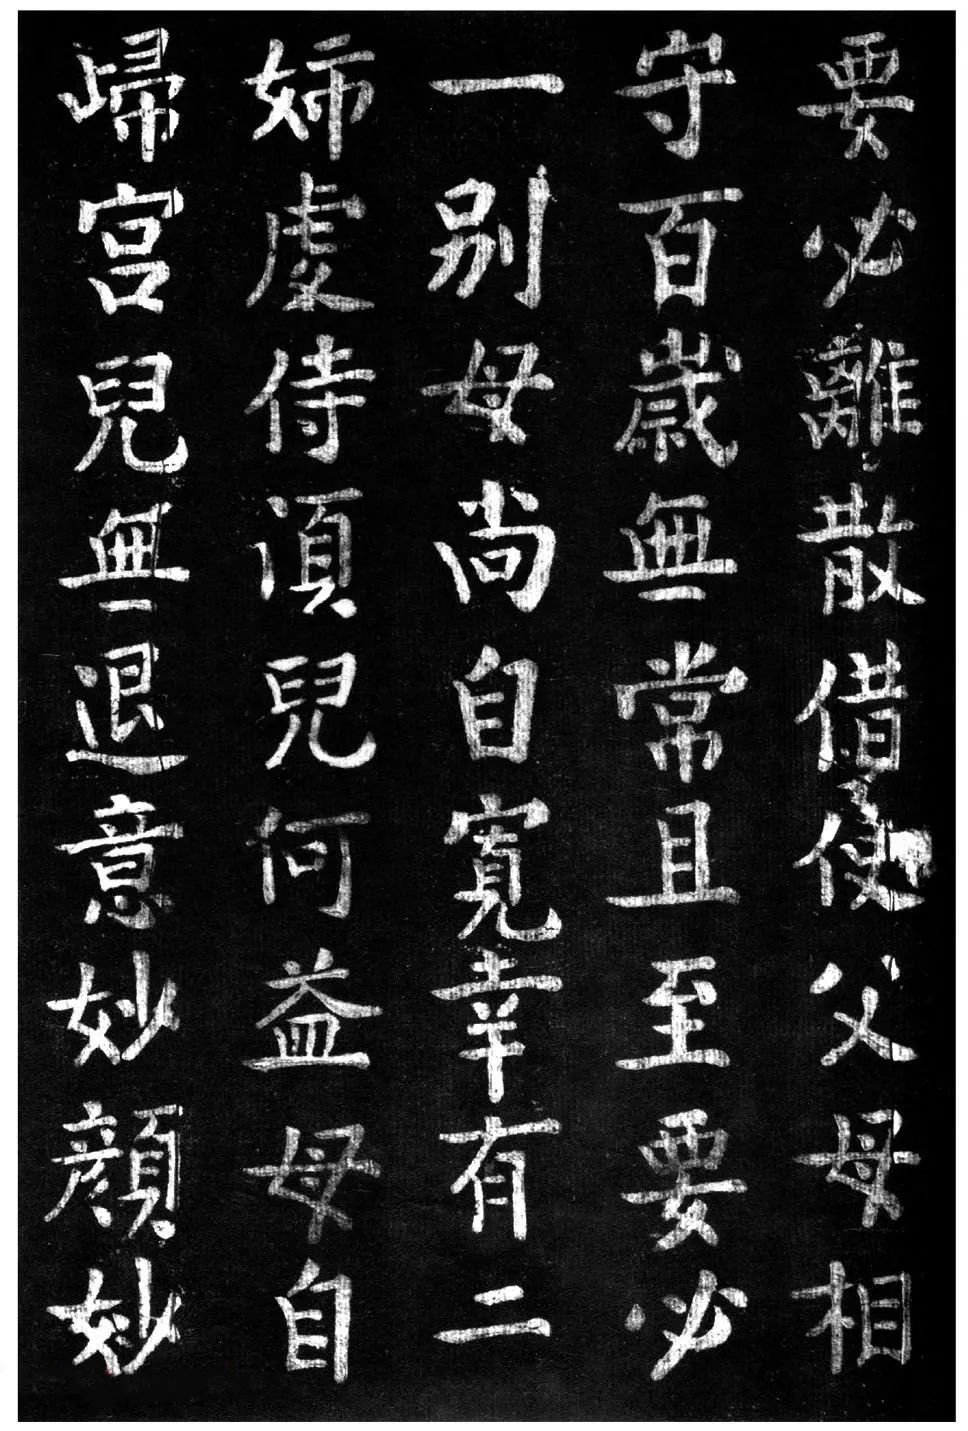 要必離散借使父母相
守百歲無常且至要必
一別母尚自寬幸有二
姊處侍須兒何益母自
歸宮兒無退意妙顏妙